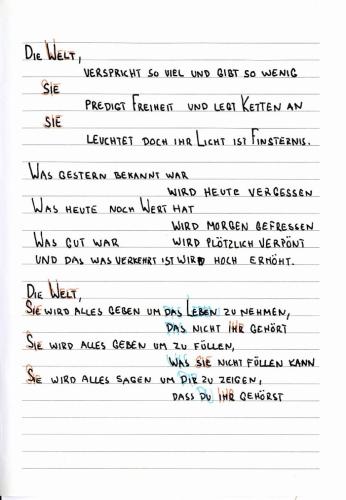 DIE WELT,
VERSPRICHT SO VIEL UND GIBT SO WENIG
SIE
PREDIGT FREIHEIT UND LEGT KETTEN AN
SIE
LEUCHTET DOCH IHR LICHT IST FINSTERNIS.
WAS GESTERN BEKANNT WAR
WIRD HEUTE VERGESSEN
WAS HEUTE NOCH WERT HAT
WIRD MORGEN GEFRESSEN
WAS GUT WAR WIRD PLÖTZLICH VERPÖNT
UND DAS WAS VERKEHRT IST WIRD HOCH ERHÖHT.
DIE WELT,
SIE WIRD ALLES GEBEN UM DAS LEBEN ZU NEHMEN,
DAS NICHT IHR GEHÖRT
SIE WIRD ALLES GEBEN UM ZU FÜLLEN,
WAS SIE NICHT FÜLLEN KANN
SIE WIRD ALLES SAGEN UM DIR ZU ZEIGEN,
DASS DU IHR GEHÖRST